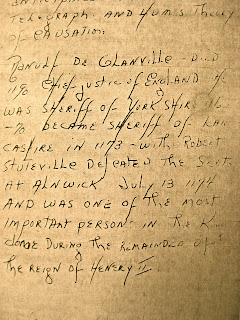 Telegraph. AND Hum's Theory
of CAUSATION.
RANULF DE GLANVILLE - DIED
1190 Chief justice of ENGLAND
WAS SHERIFF OF YORKSHIRE 116
-70 became SHERIFF of LAN
CASHIRE IN 1173 - with Robert
Stuteville Defeated The Scot.
AT ALNWICK July 13 1174
AND WAS ONE of The most
important persons in The K
dome During The Remainder of
The reign of Henery II